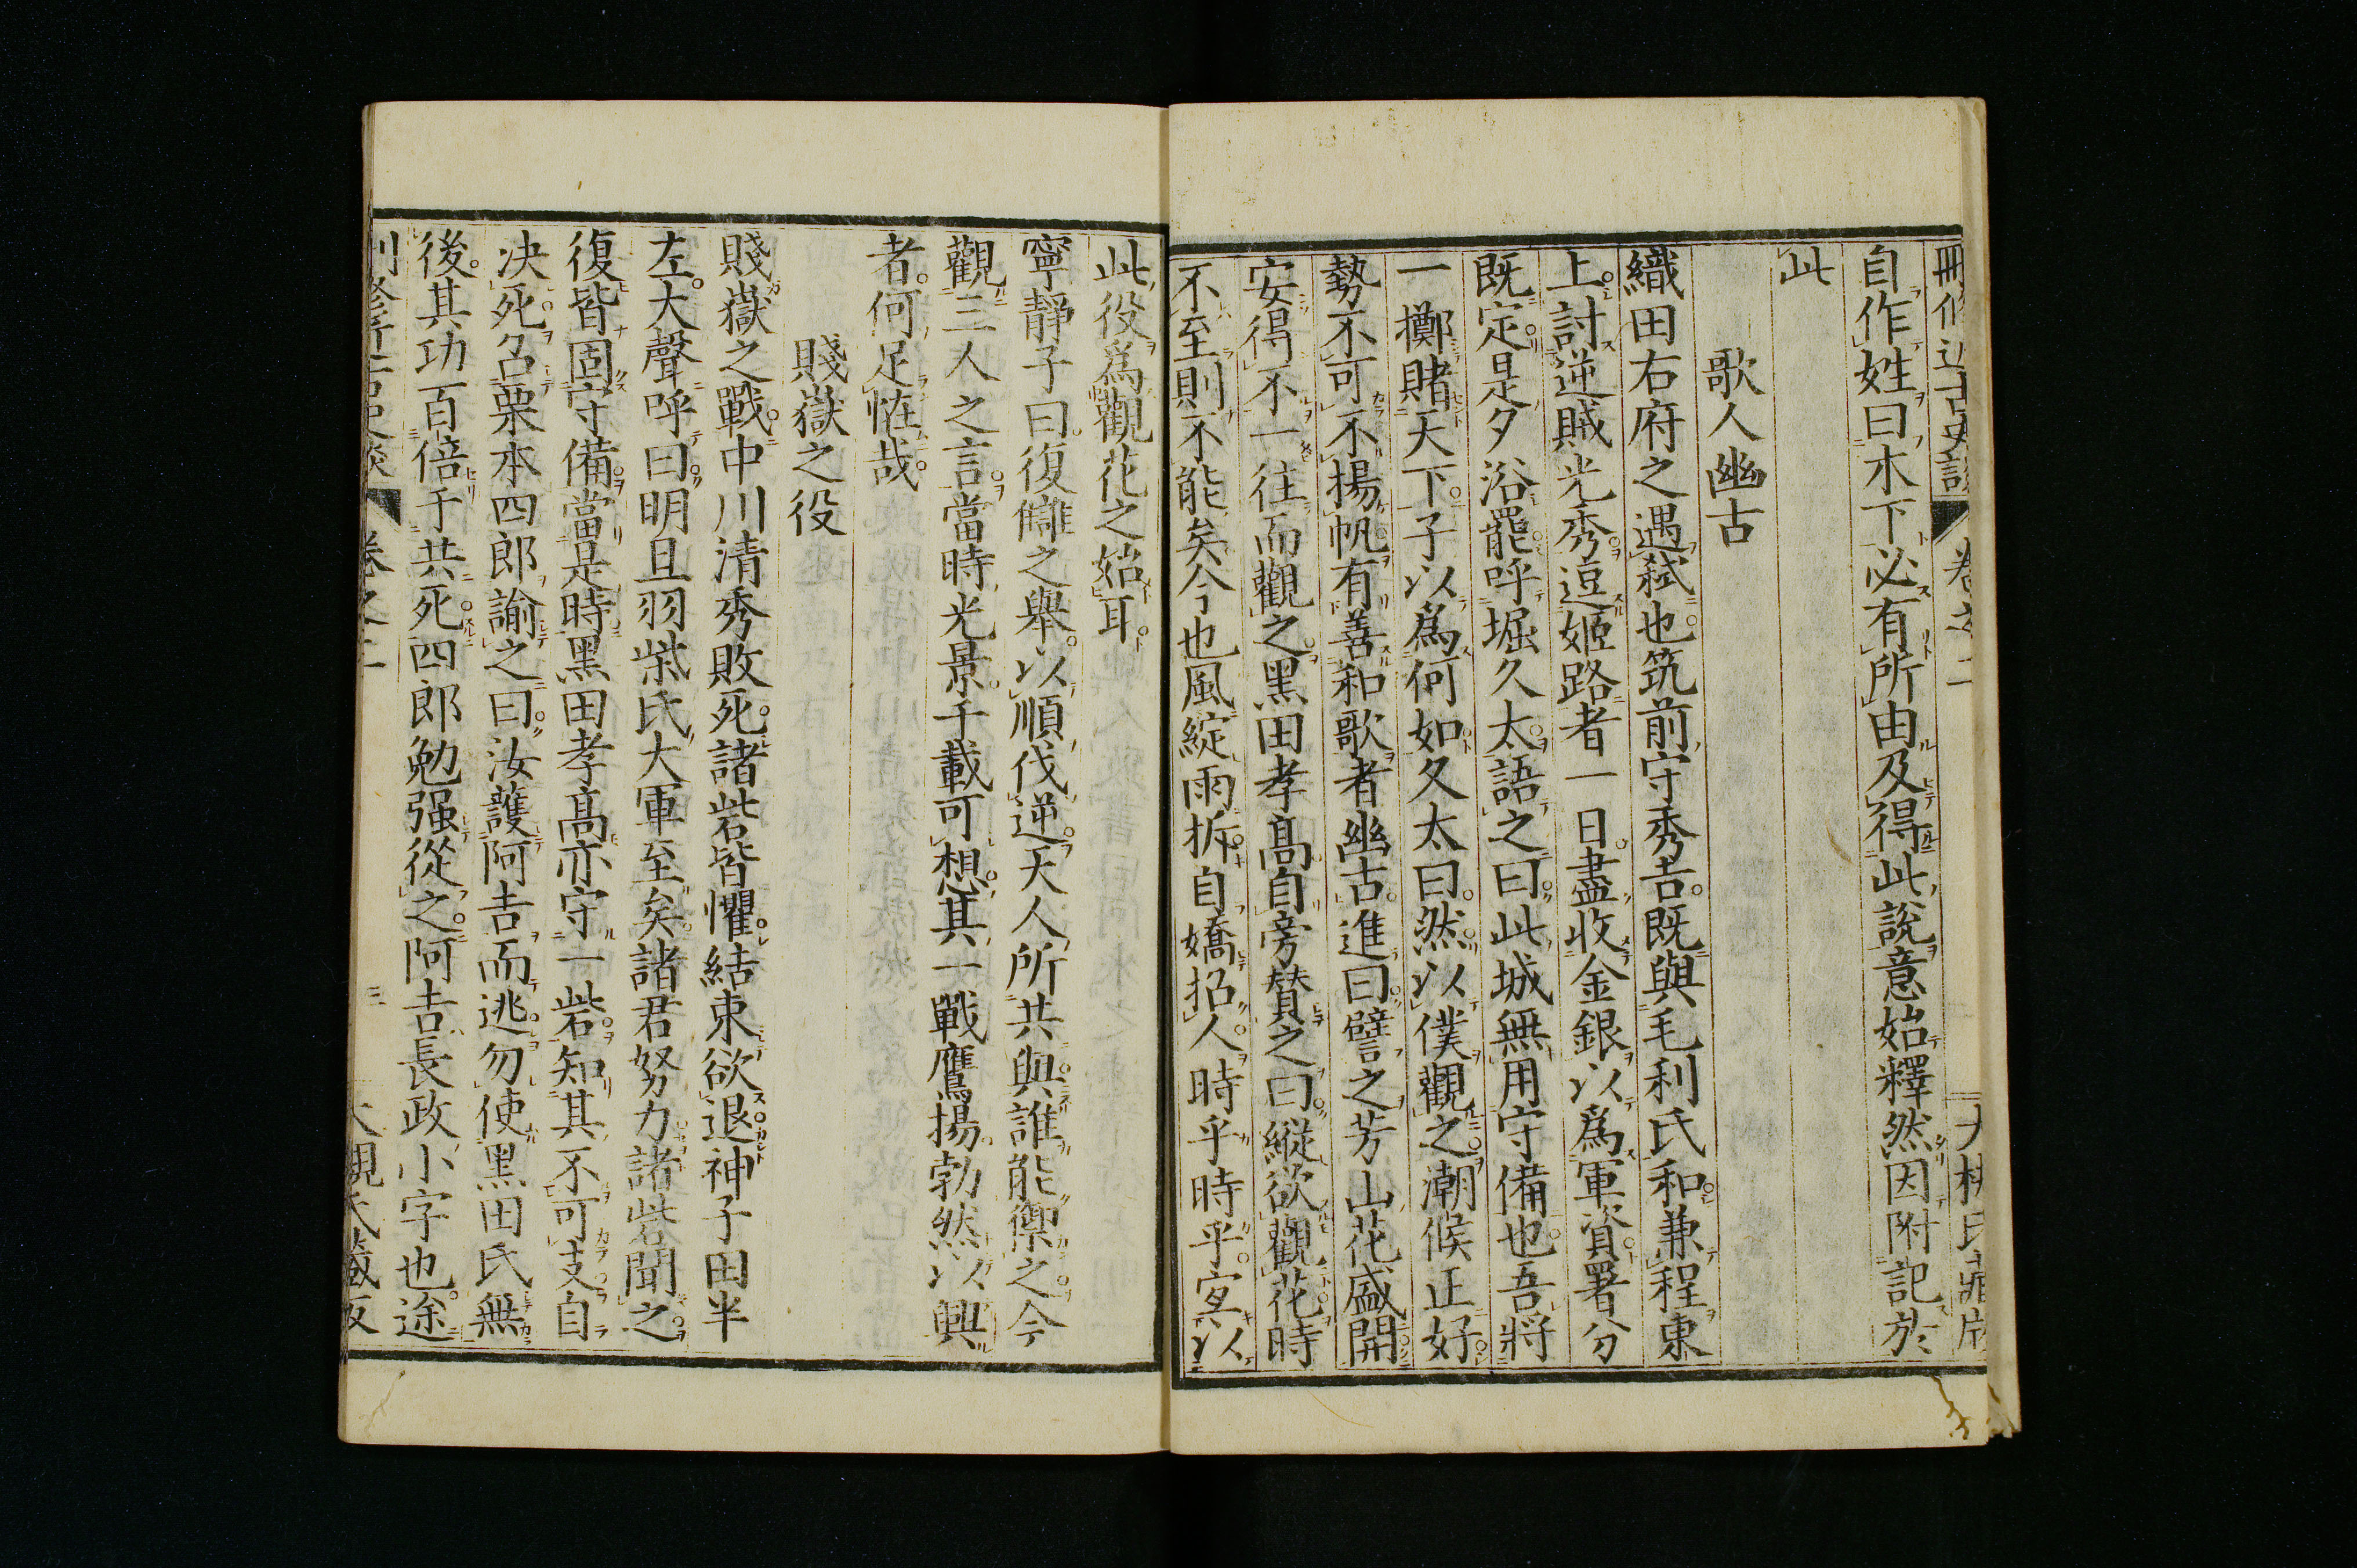 刪修近古史談 卷之二 大槻氏藏版
自作姓曰木下必有所由及得此說意始釋然因附記於
此
歌人幽古
織田右府之遇弒也筑前守秀吉既與毛利氏和兼程東
上討逆賊光秀逗姬路者一日盡收金銀以爲軍資署分
既定是夕浴罷呼堀久太語之曰此城無用守備也吾將
一擲賭天下子以爲何如久太曰然以僕觀之潮候正好
勢不可不揚帆有善和歌者幽古進曰譬之芳山花盛開
安得不一往而觀之黑田孝高自旁贊之曰縱欲觀花時
不至則不能矣今也風綻雨拆自嬌招人時乎時乎寔以
此役爲觀花之始耳
寧靜子曰復讎之舉以順伐逆天人所共與誰能禦之今
觀三人之言當時光景千載可想其一戰鷹揚勃然以興
者何足恠哉
賤嶽之役
賤嶽之戰中川清秀敗死諸砦皆懼結束欲退神子田半
左大聲呼曰明旦羽柴氏大軍至矣諸君努力諸砦聞之
復皆固守備當是時黑田孝高亦守一砦知其不可支自
决死召栗本四郎諭之曰汝護阿吉而逃勿使黑田氏無
後其功百倍于共死四郎勉强從之阿吉長政小字也途
刪修近古史談 卷之二 三 大槻氏藏版